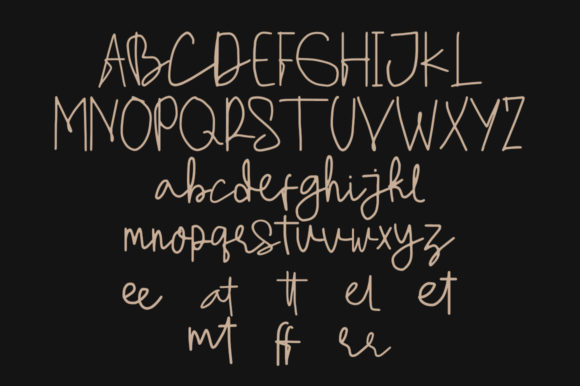 ABCDEFGHIJKL
MNOPQRSTUVWXYZ
abcdefghijkl
mnopqrstuvwxyz
ee at tt el et
mt ff rr